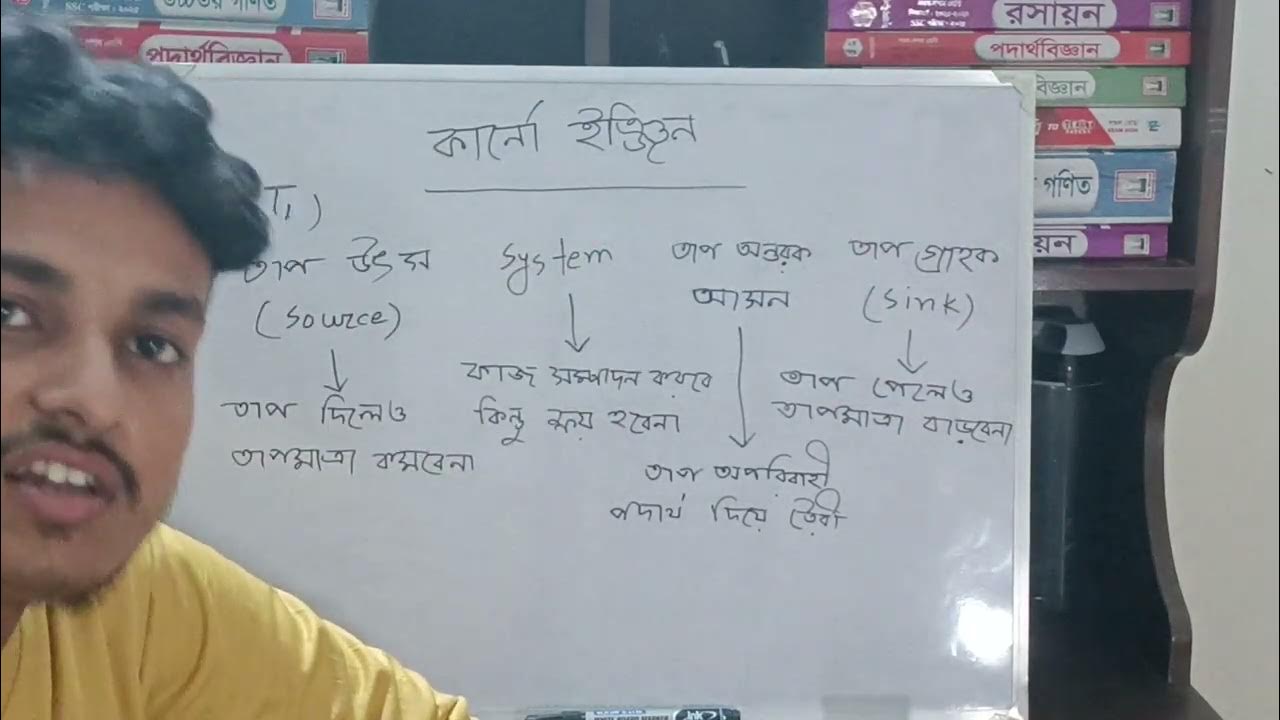 উচ্চতর গণিত
পদার্থবিজ্ঞান
রসায়ন
পদার্থবিজ্ঞান
বিজ্ঞান
গণিত
য়ন
কার্নো ইঞ্জিন
T₁)
তাপ উৎস
(source)
তাপ দিলেও
তাপমাত্রা কমবেনা
system
কাজ সম্পাদন করবে
কিন্তু ক্ষয় হবেনা
তাপ অন্তরক
আসন
তাপ অপরিবাহী
পদার্থ দিয়ে তৈরী
তাপ গ্রাহক
(sink)
তাপ পেলেও
তাপমাত্রা বাড়বেনা